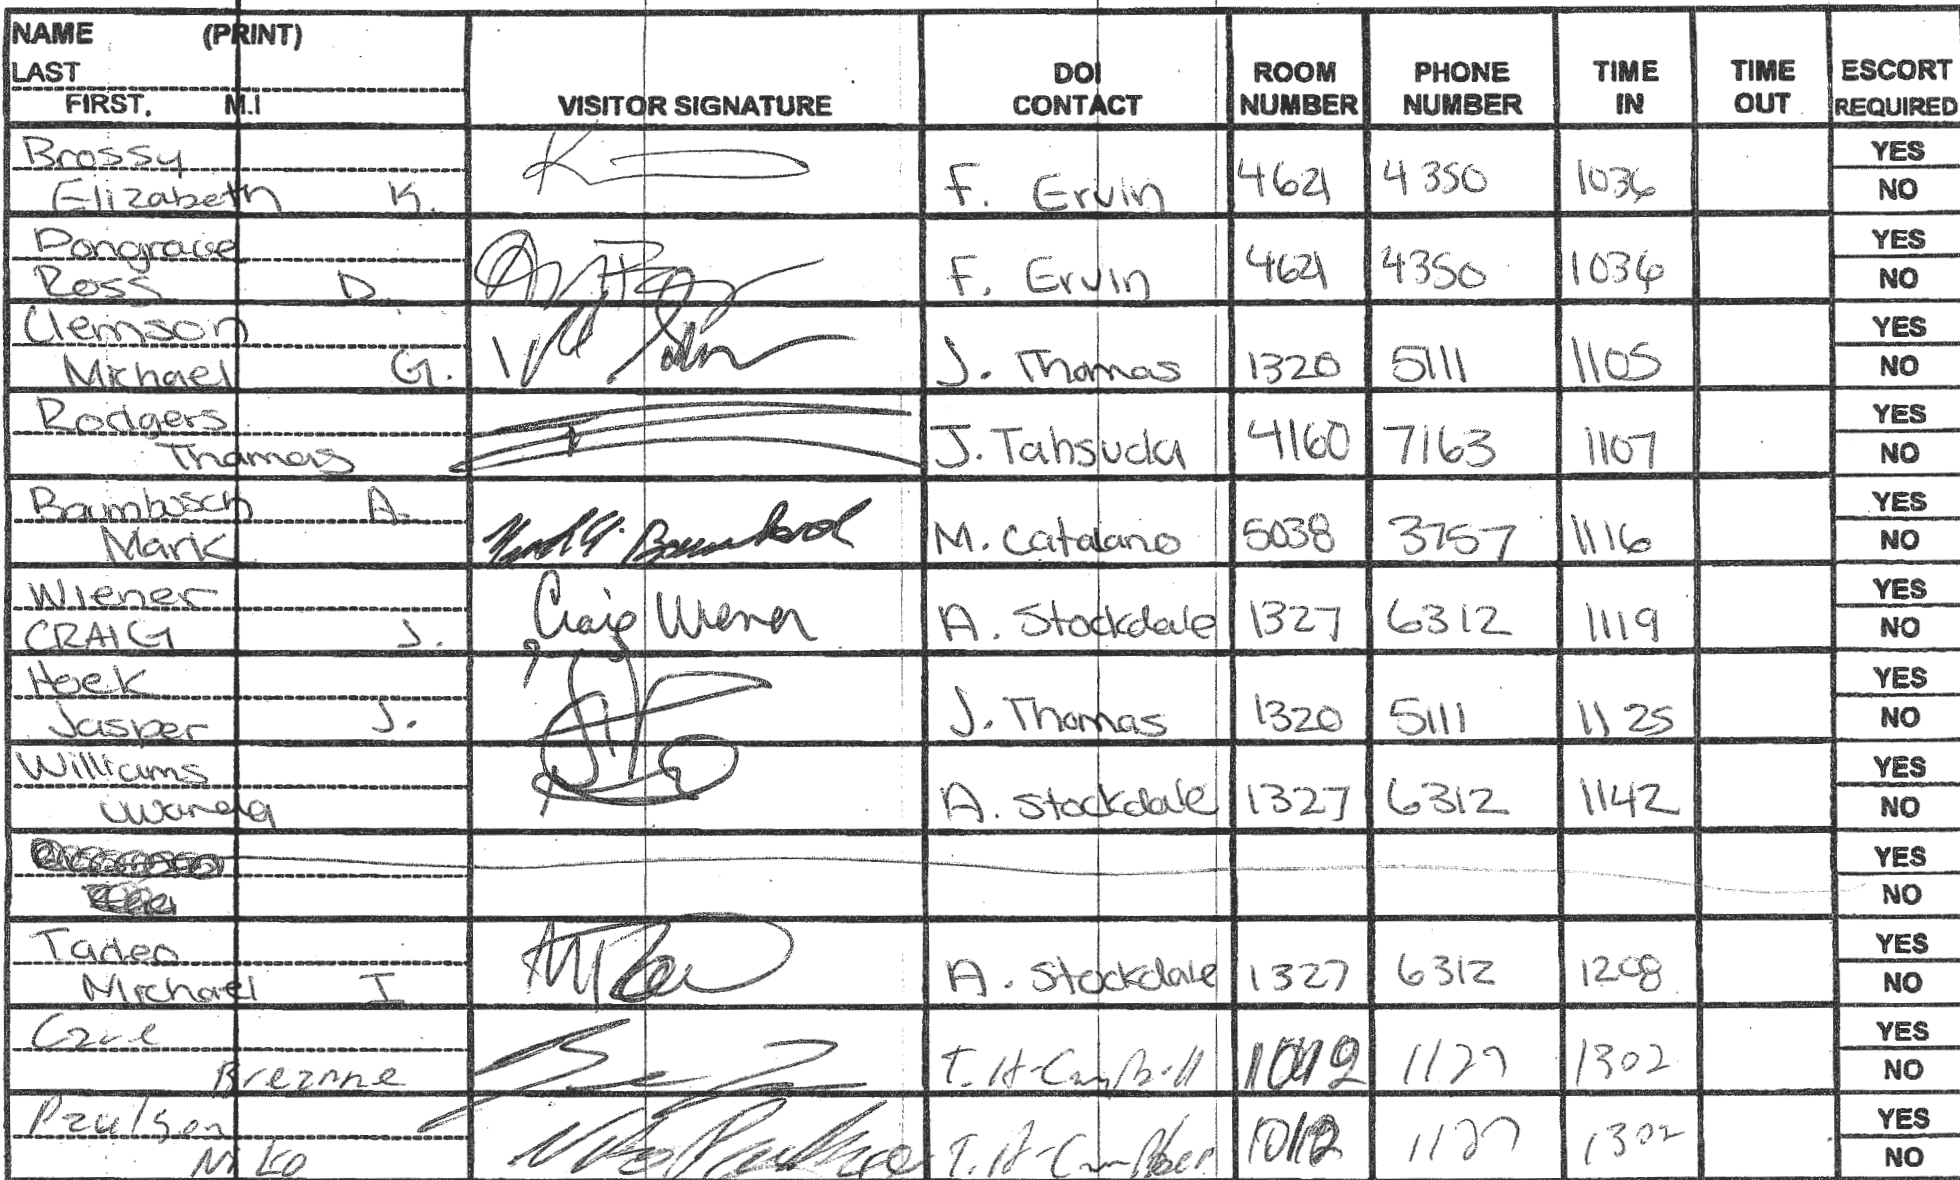 NAME (PRINT)
LAST
FIRST, M.I
VISITOR SIGNATURE
DOI CONTACT
ROOM NUMBER
PHONE NUMBER
TIME IN
TIME OUT
ESCORT REQUIRED
Brossy
Elizabeth K.
F. Ervin 4621 4350 1036 YES NO
Pongracie
Ross D.
F. Ervin 4621 4350 1036 YES NO
Clemson
Michael G.
J. Thomas 1320 5111 1105 YES NO
Rodgers
Thomas
J. Tahsuda 4160 7163 1107 YES NO
Baumbusch A.
Mark
M. Catalano 5038 3757 1116 YES NO
Wiener
CRAIG J.
Craig Wiener
A. Stockdale 1327 6312 1119 YES NO
Hoek
Jasper J.
J. Thomas 1320 5111 1125 YES NO
Williams
A. Stockdale 1327 6312 1142 YES NO
YES NO
Tadeo
Michael I
A. Stockdale 1327 6312 1208 YES NO
1127 1302 YES NO
Paulsen
Niko
1127 1302 YES NO